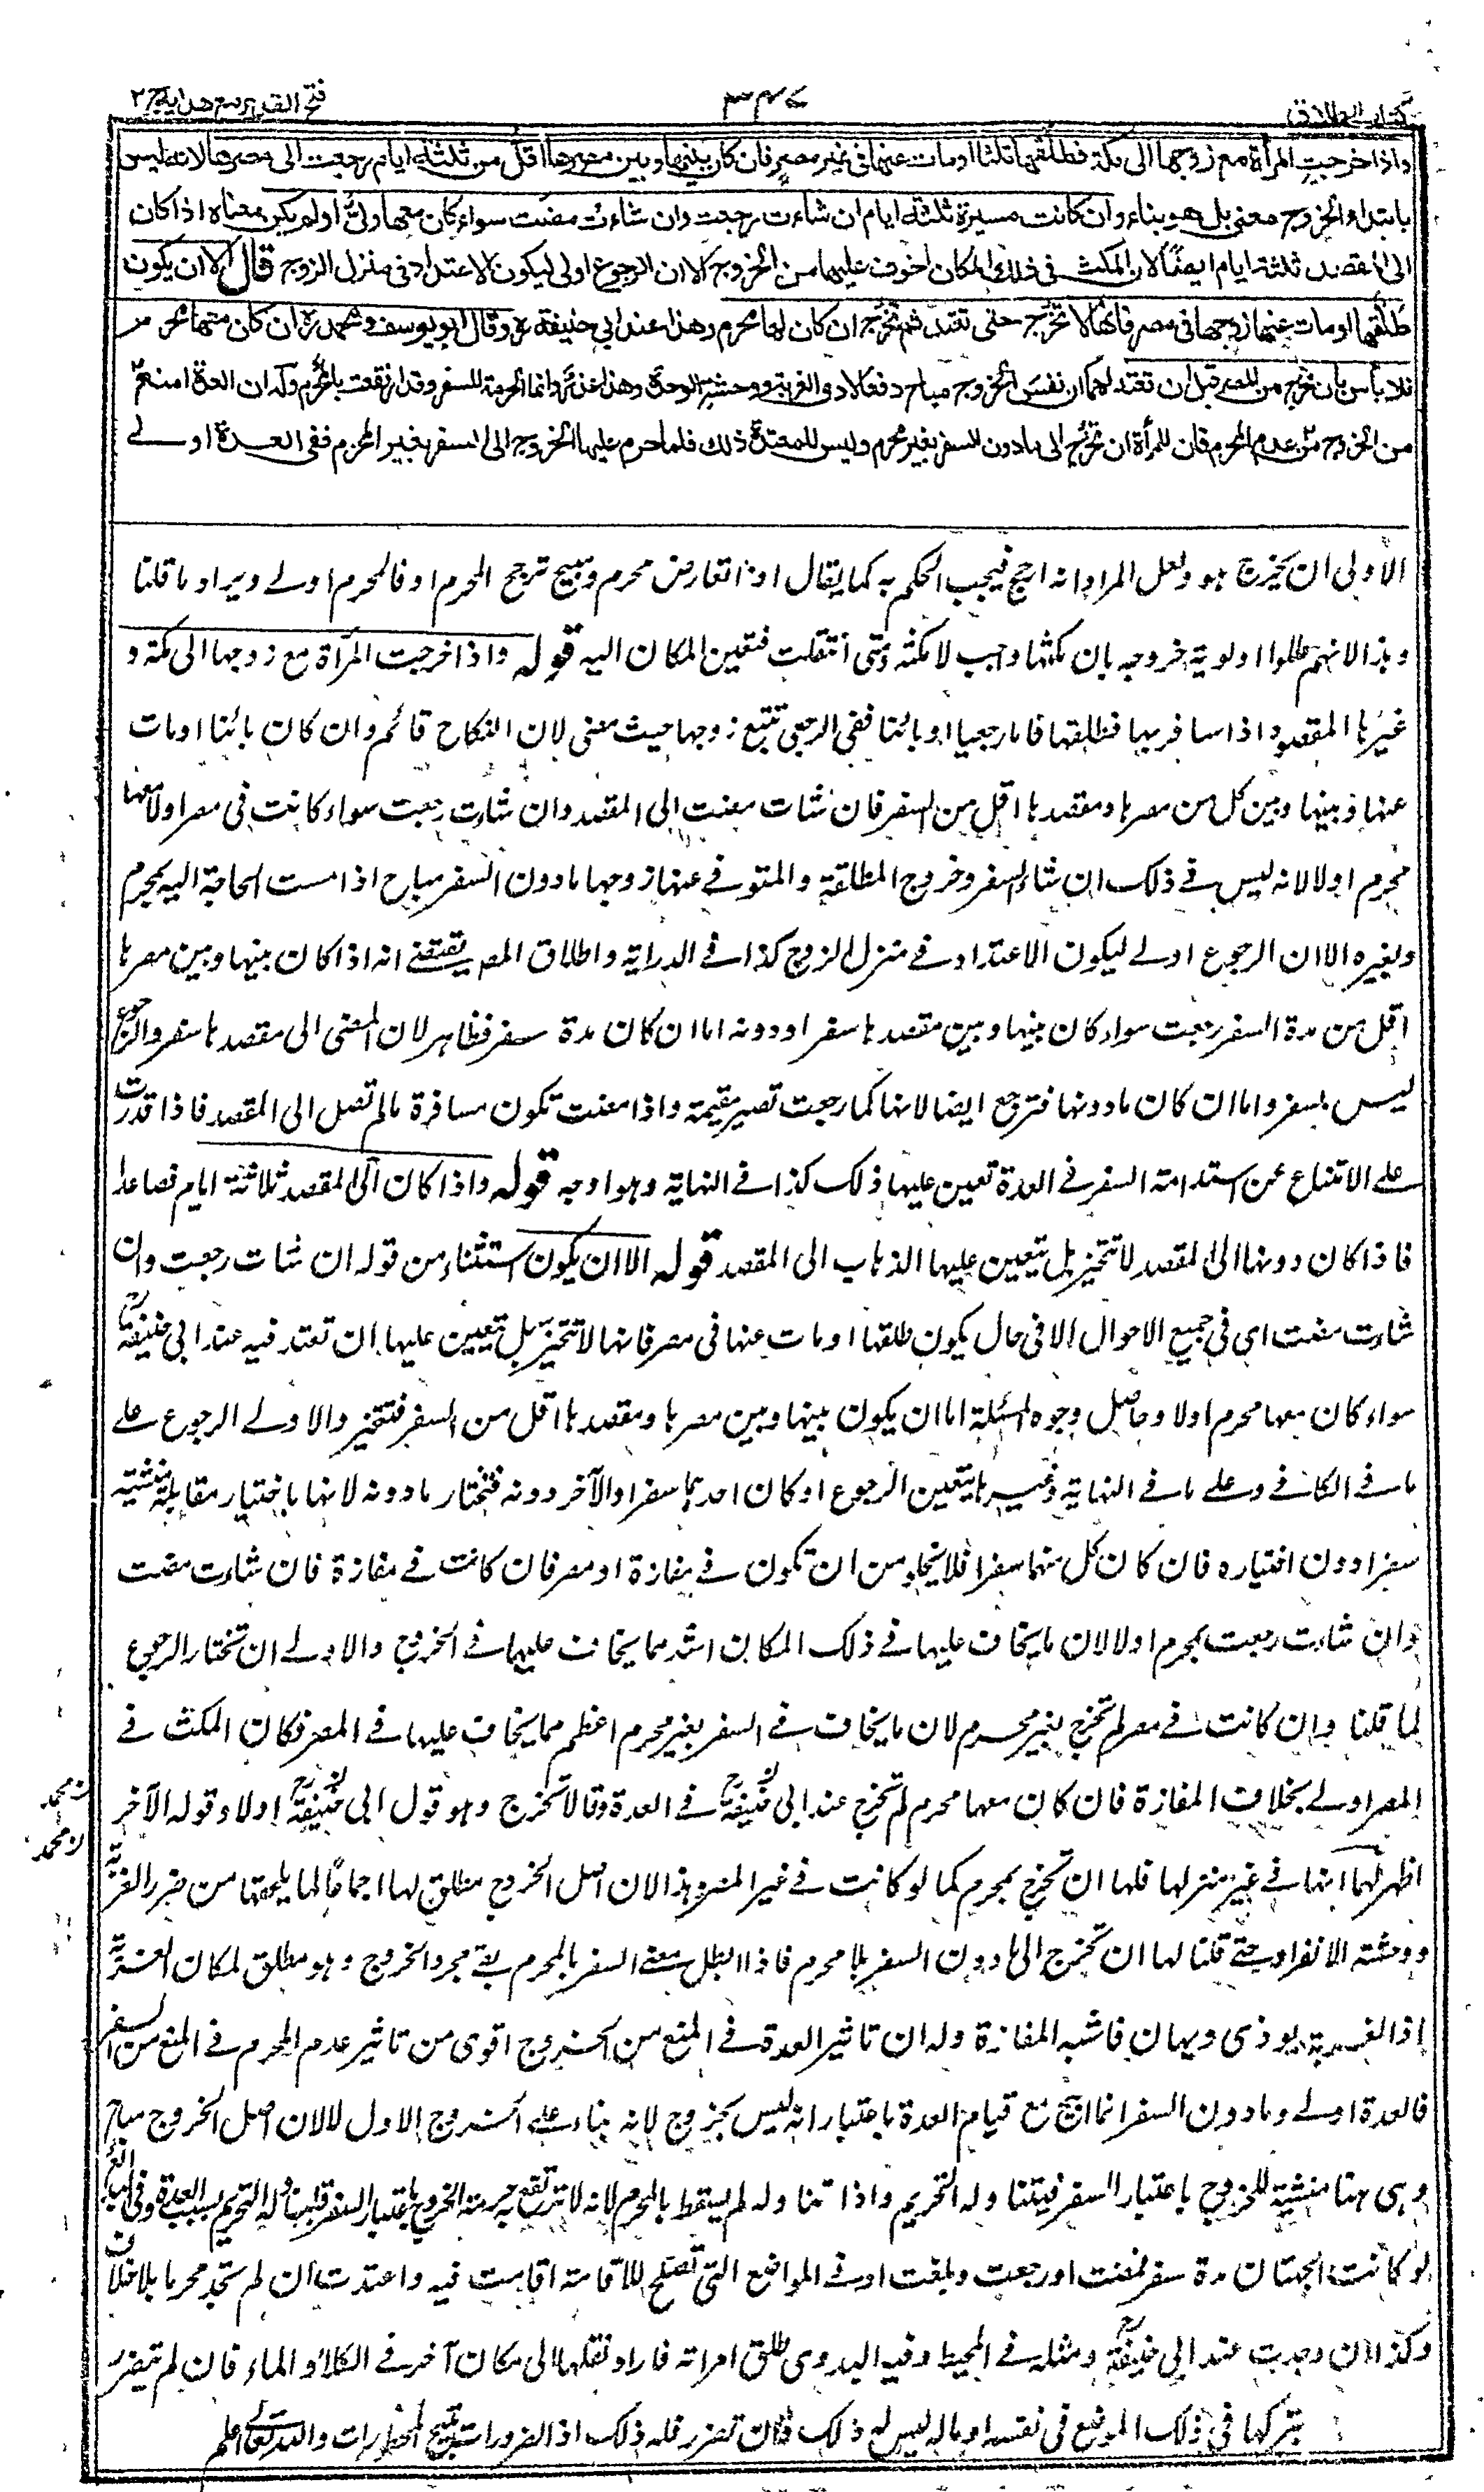 كتاب الطلاق
٣٤٧
فتح القدير مع هدايه ج ٢
واذا خرجت المرأة مع زوجها الى مكة فطلقها ثلثا او مات عنها فى غير مصر فان كان بينها وبين مصرها اقل من ثلثة ايام رجعت الى مصرها لانه ليس
بابتداء الخروج معنى بل هو بناء وان كانت مسيرة ثلثة ايام ان شاءت رجعت وان شاءت مضت سواء كان معها ولى او لم يكن معناه اذا كان
الى المقصد ثلثة ايام ايضا لان المكث فى ذلك المكان اخوف عليها من الخروج الا ان الرجوع اولى ليكون الاعتداد فى منزل الزوج قال الا ان يكون
طلقها او مات عنها زوجها فى مصر فانها لا تخرج حتى تعتد ثم تخرج ان كان لها محرم وهذا عند ابي حنيفة رح وقال ابو يوسف و محمد رح ان كان معها محرم
فلا بأس بان تخرج من المصر قبل ان تعتد لهما ان نفس الخروج مباح دفعا لاذى الغربة ووحشة الوحدة وهذا عذر وانما الحرمة للسفر وقد ارتفعت بالمحرم وله ان العدة امنع
من الخروج من عدم المحرم فان للمرأة ان تخرج الى ما دون السفر بغير محرم وليس للمعتدة ذلك فلما حرم عليها الخروج الى السفر بغير المحرم ففى العدة اولے
الاولى ان يخرج هو ولعل المراد انه ارجح فيجب الحكم به كما يقال اذا تعارض محرم ومبيح ترجح المحرم او فالمحرم اولے ويراد ما قلنا
وهذا لانهم عللوا اولوية خروجه بان مكثها واجب لا مكثه ومتى انتقلت فتعين المكان اليه قوله واذا خرجت المرأة مع زوجها الى مكة و
غيرها المقصود اذا سافر بها فطلقها فاما رجعيا او بائنا ففى الرجعى تتبع زوجها حيث مضى لان النكاح قائم وان كان بائنا او مات
عنها وبينها وبين كل من مصرها ومقصدها اقل من السفر فان شاءت مضت الى المقصد وان شاءت رجعت سواء كانت فى مصر اولا معها
محرم اولا لانه ليس فے ذلك انشاء السفر وخروج المطلقة والمتوفے عنها زوجها ما دون السفر مباح اذا مست الحاجة اليه بمحرم
وبغيره الا ان الرجوع اولے ليكون الاعتداد فے منزل الزوج كذا فے الدراية واطلاق المص يقتضے انه اذا كان بينها وبين مصرها
اقل من مدة السفر رجعت سواء كان بينها وبين مقصدها سفر او دونه اما ان كان مدة سفر فظاهر لان المضى الى مقصدها سفر والرجوع
ليس بسفر واما ان كان ما دونها فترجع ايضا لانها كما رجعت تصير مقيمة واذا مضت تكون مسافرة ما لم تصل الى المقصد فاذا قدرت
على الامتناع عن استدامة السفر فى العدة تعين عليها ذلك كذا فے النهاية وهو اوجه قوله واذا كان الى المقصد ثلاثة ايام فصاعدا
فاذا كان دونها الى المقصد لا تتخير بل يتعين عليها الذهاب الى المقصد قوله الا ان يكون استثناء من قوله ان شاءت رجعت وان
شاءت مضت اى فى جميع الاحوال الا فى حال يكون طلقها او مات عنها فى مصر فانها لا تتخير بل يتعين عليها ان تعتد فيه عند ابى حنيفة رح
سواء كان معها محرم اولا وحاصل وجوه المسئلة اما ان يكون بينها وبين مصرها ومقصدها اقل من السفر فتتخير والاولے الرجوع علے
ما فے الكافے وعلے ما فے النهاية وغيرها يتعين الرجوع او كان احدهما سفرا والآخر دونه فتختار ما دونه لانها باختيار مقابله منشئة
سفرا دون اختياره فان كان كل منهما سفرا فلا يخلو من ان تكون فے مفازة او مصر فان كانت فے مفازة فان شاءت مضت
وان شاءت رجعت بمحرم اولا لان ما يخاف عليها فے ذلك المكان اشد مما يخاف عليها فے الخروج والاولے ان تختار الرجوع
لما قلنا وان كانت فے مصر لم تخرج بغير محرم لان ما يخاف فے السفر بغير محرم اعظم مما يخاف عليها فے المصر فكان المكث فے
المصر اولے بخلاف المفازة فان كان معها محرم لم تخرج عند ابى حنيفة رح فے العدة وقالا تخرج وهو قول ابى حنيفة رح اولا وقوله الآخر
اظهر لهما انها فے غير منزلها فلها ان تخرج بمحرم كما لو كانت فے غير المصر وهذا لان اصل الخروج مطلق لها اجماعا لما يلحقها من ضرر الغربة
ووحشة الانفراد حتے قلنا لها ان تخرج الى ما دون السفر بلا محرم فاذا ابطل معنے السفر بالمحرم بقے مجرد الخروج وهو مطلق لمكان الغربة
اذ الغريب يوذى ويهان فاشبه المفازة وله ان تاثير العدة فے المنع من الخروج اقوى من تاثير عدم المحرم فے المنع من السفر
فالعدة اولے وما دون السفر انما ابيح مع قيام العدة باعتبار انه ليس بخروج لانه بناء علے الخروج الاول لا لان اصل الخروج مباح
وهى هنا منشئة للخروج باعتبار السفر فيتناوله التحريم واذا تناوله لم يسقط بالمحرم لانه لا ترتفع به حرمة الخروج باعتبار السفر قلنا وله التحريم بسبب العدة وفى
لو كانت الجهتان مدة سفر فمضت او رجعت وبلغت ادنے المواضع التى تصلح للاقامة اقامت فيه واعتدت ان لم تجد محرما بلا خلاف
وكذا ان وجدت عند ابى حنيفة رح ومثله فے المحيط وفيه البدوى طلق امراته فاراد نقلها الى مكان آخر فے الكلأ والماء فان لم تتضرر
بتركها فى ذلك الموضع فى نفسه او ماله ليس له ذلك وان تضرر فله ذلك اذ الضرورات تبيح المحظورات والله تعالى اعلم